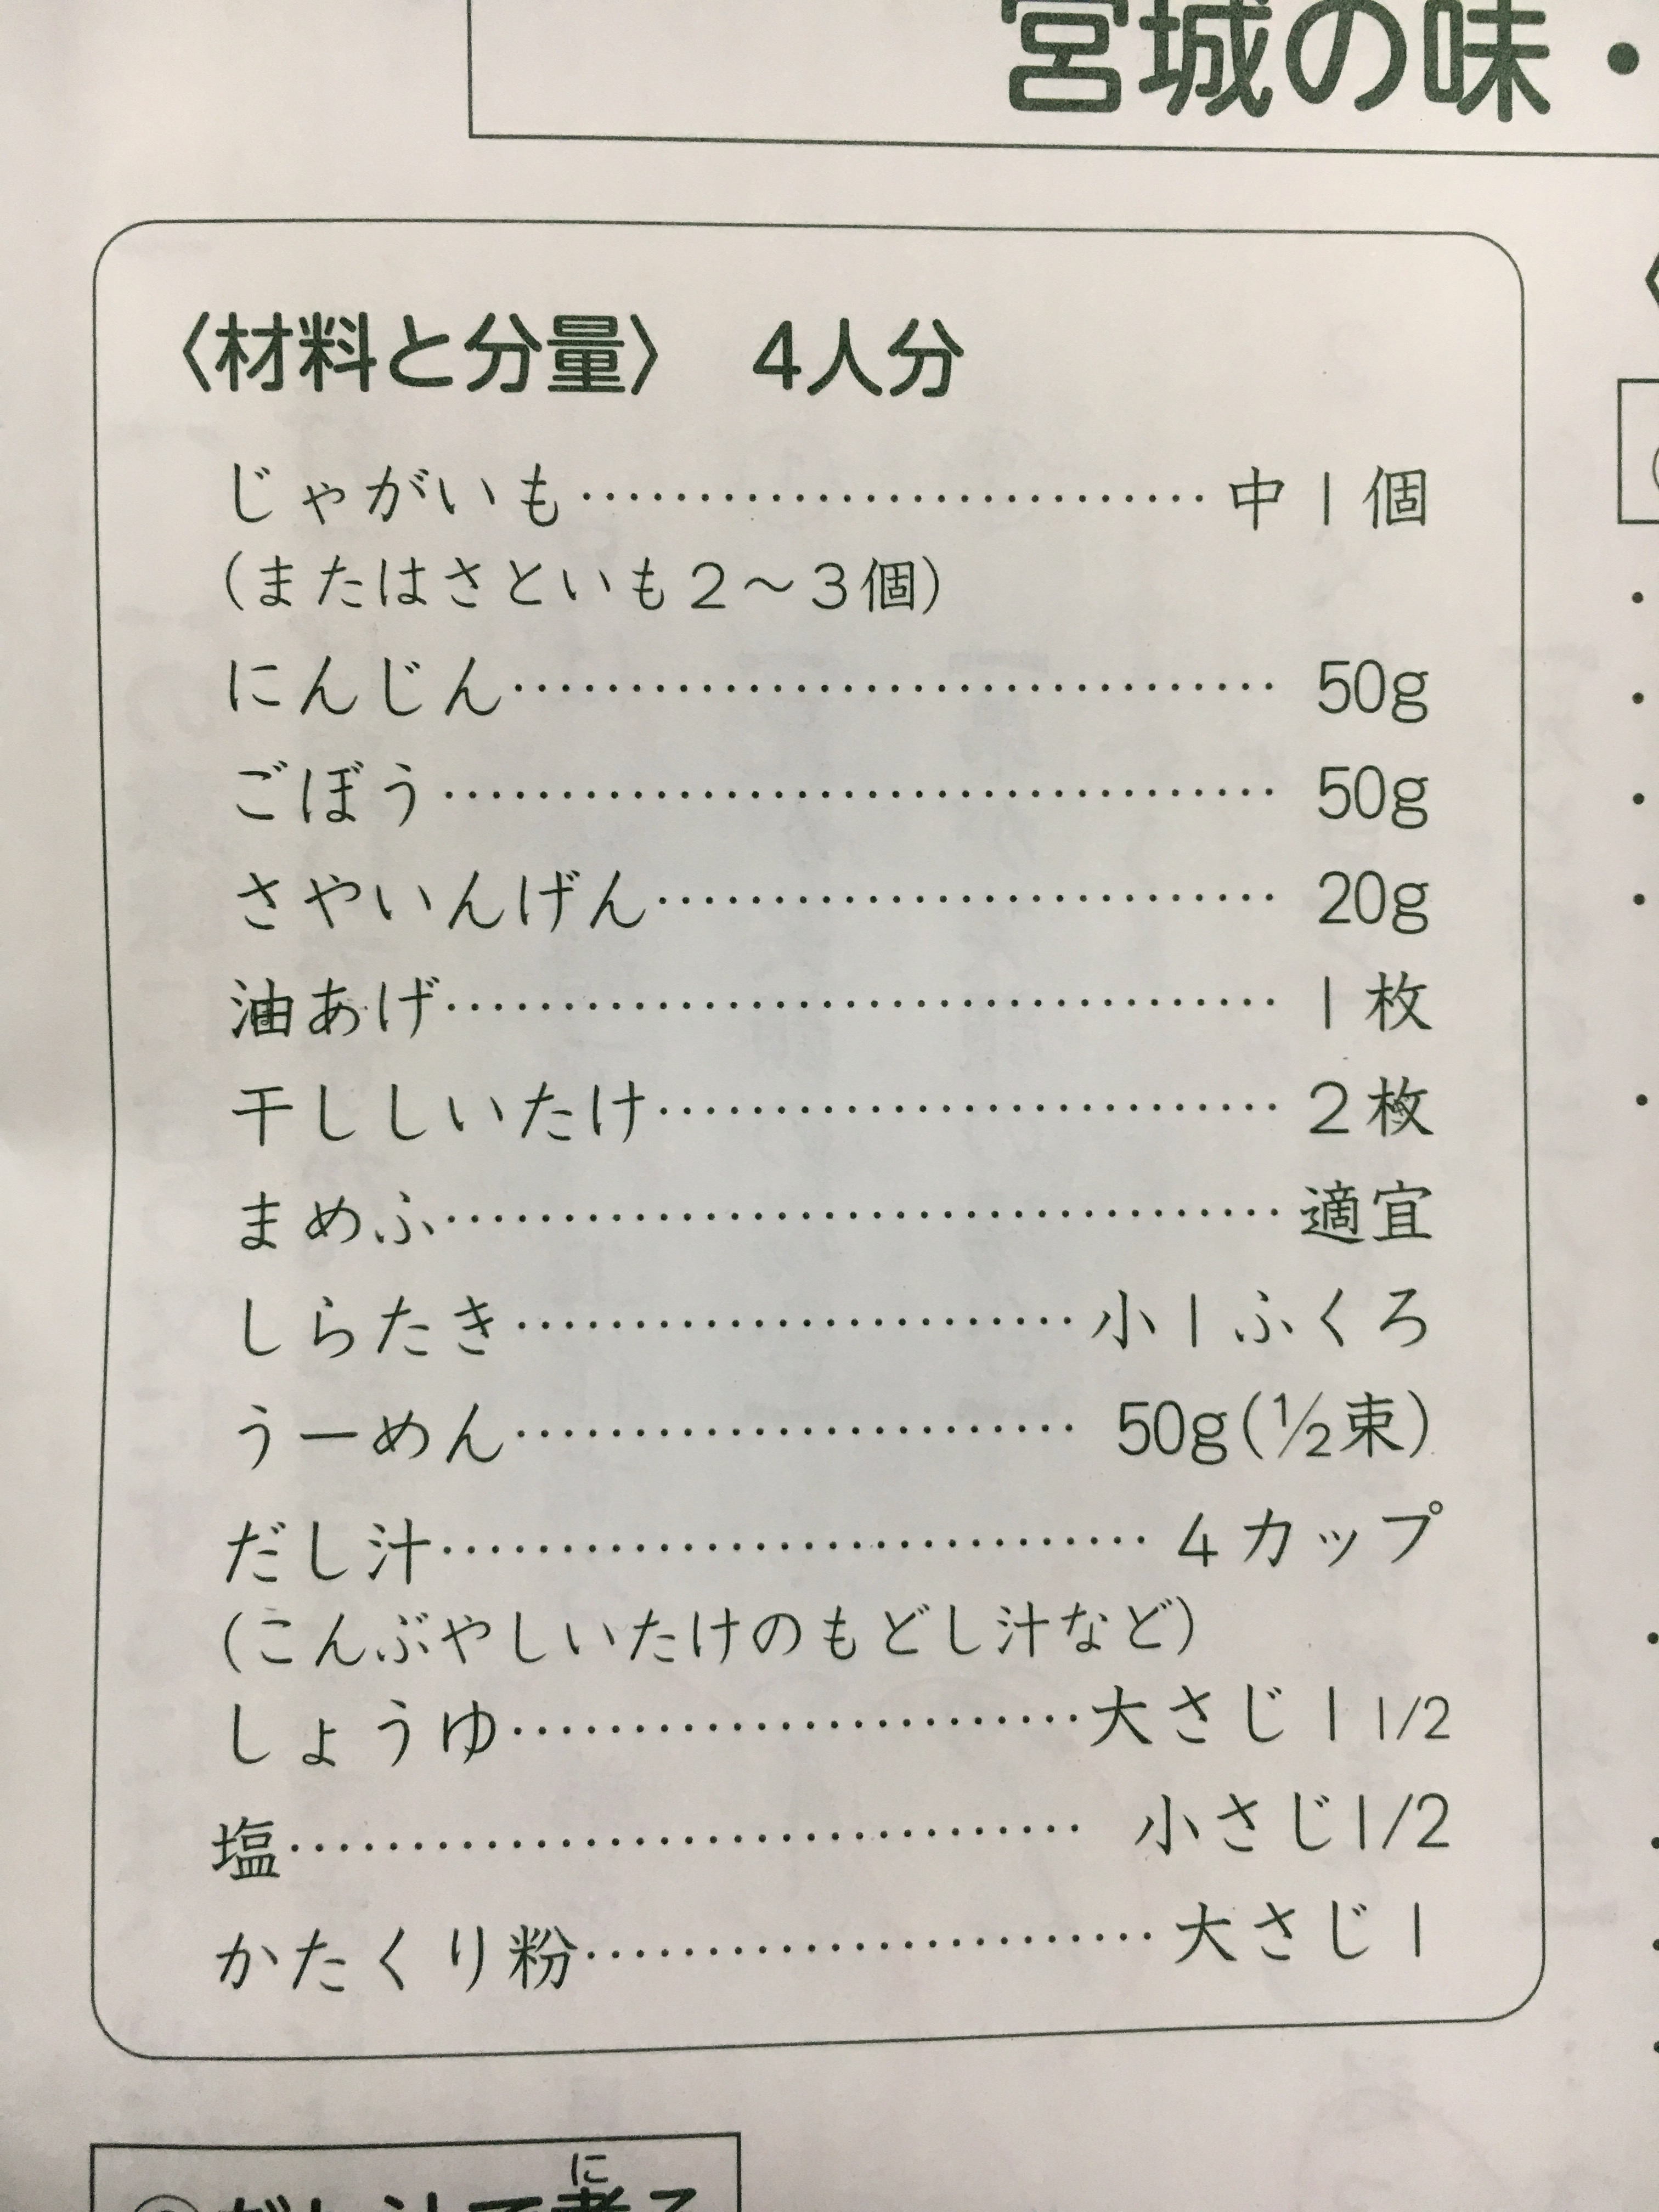 宮城の味・
〈材料と分量〉 4人分
じゃがいも…………………………中1個
(またはさといも2〜3個)
にんじん……………………………… 50g
ごぼう………………………………… 50g
さやいんげん………………………… 20g
油あげ………………………………… 1枚
干ししいたけ………………………… 2枚
まめふ…………………………………適宜
しらたき………………………小1ふくろ
うーめん……………………… 50g(½束)
だし汁…………………………… 4カップ
(こんぶやしいたけのもどし汁など)
しょうゆ………………………大さじ1 1/2
塩………………………………… 小さじ1/2
かたくり粉………………………大さじ1
に